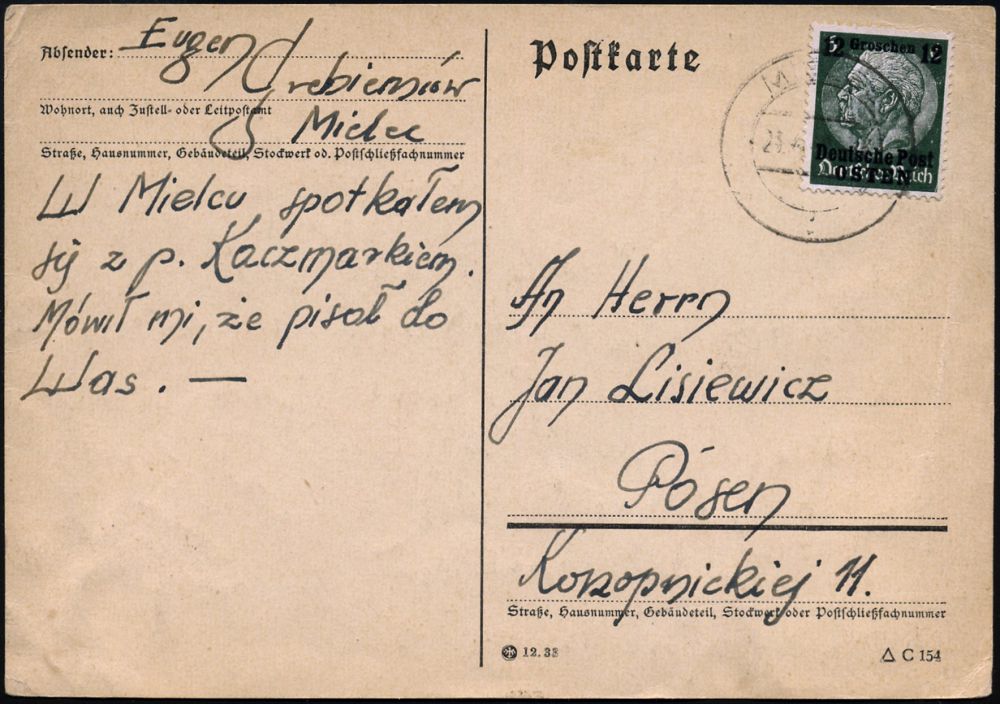 Absender: Eugen
Grebieniów
Wohnort, auch Zustell- oder Leitpostamt
Mielec
Straße, Hausnummer, Gebäudeteil, Stockwerk od. Postschließfachnummer
W Mielcu spotkałem
się z p. Kaczmarkiem.
Mówił mi, że pisał do
Was. —
Postkarte
12 Groschen 12
Deutsche Post
OSTEN
Deutsches Reich
An Herrn
Jan Lisiewicz
Pósen
Konopnickiej 11.
Straße, Hausnummer, Gebäudeteil, Stockwerk oder Postschließfachnummer
12.38
C 154